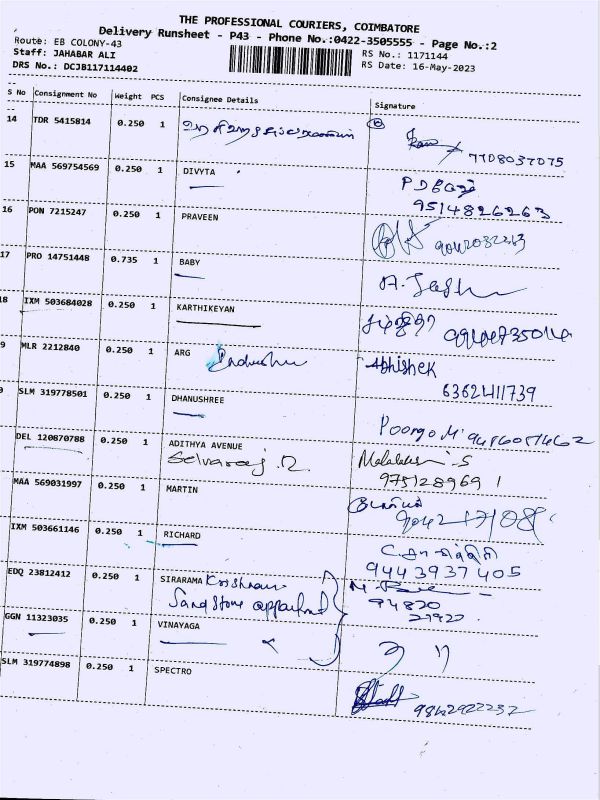 THE PROFESSIONAL COURIERS, COIMBATORE
Delivery Runsheet - P43 - Phone No.:0422-3505555 - Page No.:2
Route: EB COLONY-43 RS No.: 1171144
Staff: JAHABAR ALI RS Date: 16-May-2023
DRS No.: DCJB117114402
S No Consignment No Weight PCS Consignee Details Signature
14 TDR 5415814 0.250 1 7708037075
15 MAA 569754569 0.250 1 DIVYTA
9514826263
16 PON 7215247 0.250 1 PRAVEEN
17 PRO 14751448 0.735 1 BABY
18 IXM 503684028 0.250 1 KARTHIKEYAN
9 MLR 2212840 0.250 1 ARG Abhishek
6362411739
SLM 319778501 0.250 1 DHANUSHREE
DEL 120870788 0.250 1 ADITHYA AVENUE
Selvaraj.R. 9751289691
MAA 569031997 0.250 1 MARTIN
IXM 503661146 0.250 1 RICHARD
9443937405
EDQ 23812412 0.250 1 SIRARAMA Krishnan
Sandstone 94870
21922
GGN 11323035 0.250 1 VINAYAGA
SLM 319774898 0.250 1 SPECTRO
9842922237